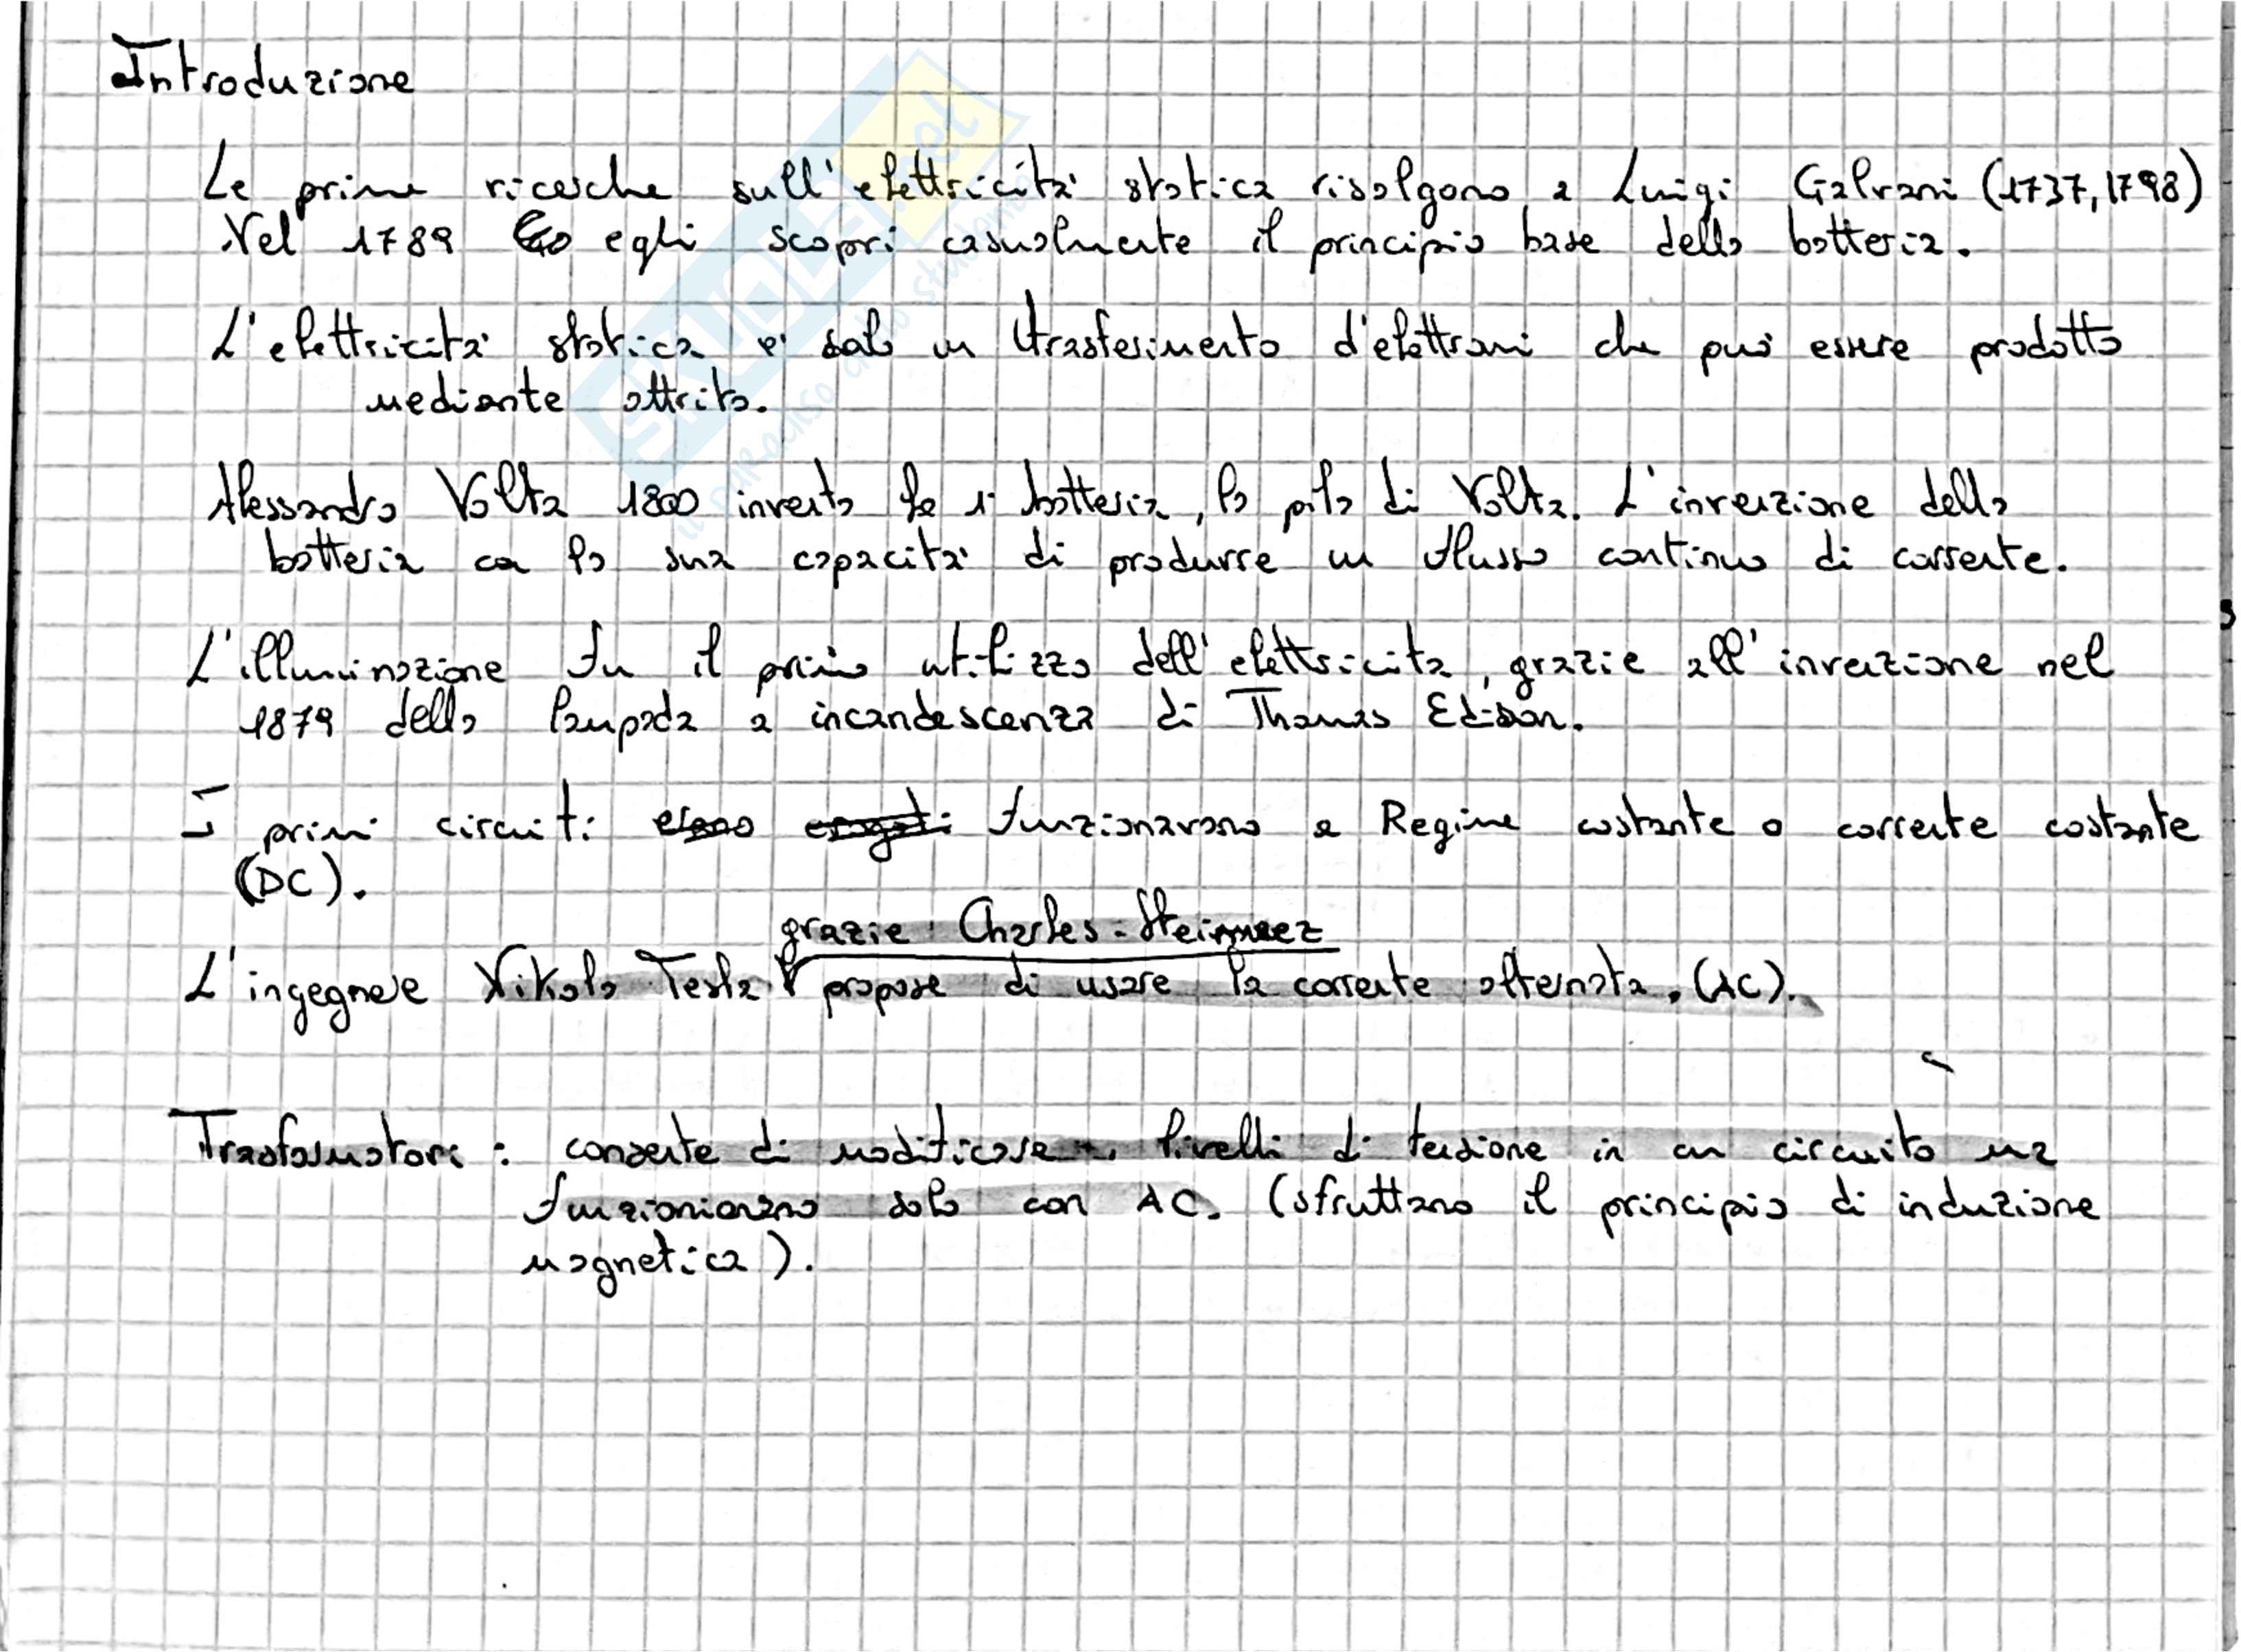 Introduzione
Le prime ricerche sull'elettricità statica risalgono a Luigi Galvani (1737, 1798)
Nel 1789 egli scoprì casualmente il principio base della batteria.
L'elettricità statica è solo un trasferimento d'elettroni che può essere prodotto
mediante attrito.
Alessandro Volta 1800 inventa la 1ª batteria, la pila di Volta. L'invenzione della
batteria con la sua capacità di produrre un flusso continuo di corrente.
L'illuminazione fu il primo utilizzo dell'elettricita, grazie all'invenzione nel
1879 della lampada a incandescenza di Thomas Edison.
I primi circuiti erano erogati funzionavano a Regime costante o corrente costante
(DC).
grazie Charles-Steinmez
L'ingegnere Nikola Tesla propose di usare la corrente alternata. (AC).
Trasformatori : consente di modificare i livelli di tensione in un circuito ma
funzionano solo con AC. (sfruttano il principio di induzione
magnetica).
SKUOLA.net
il paradiso dello studente